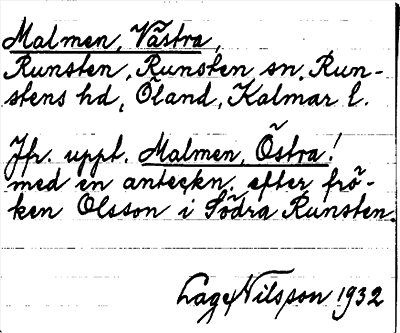 Malmen, Västra,
Runsten, Runsten sn, Run-
stens hd, Öland, Kalmar l.
Jfr. uppt. Malmen, Östra!
med en anteckn. efter frö-
ken Olsson i Södra Runsten.
Lage Nilsson 1932